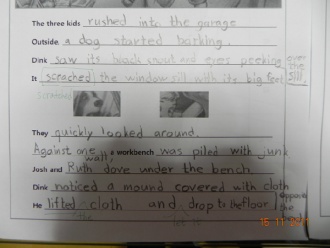 The three kids rushed into the garage
Outside a dog started barking.
Dink saw its black snout and eyes peeking over the sill
It scrached the windowsill with its big feet
scratched
They quickly looked around.
Against one wall, a workbench was piled with junk
Josh and Ruth dove under the bench.
Dink noticed a mound covered with cloth
He lifted cloth and drop to the floor opposite the
the let it
15 11